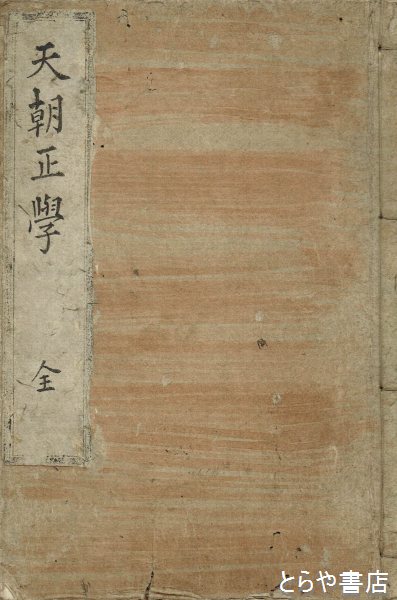 天朝正學 全
とらや書店